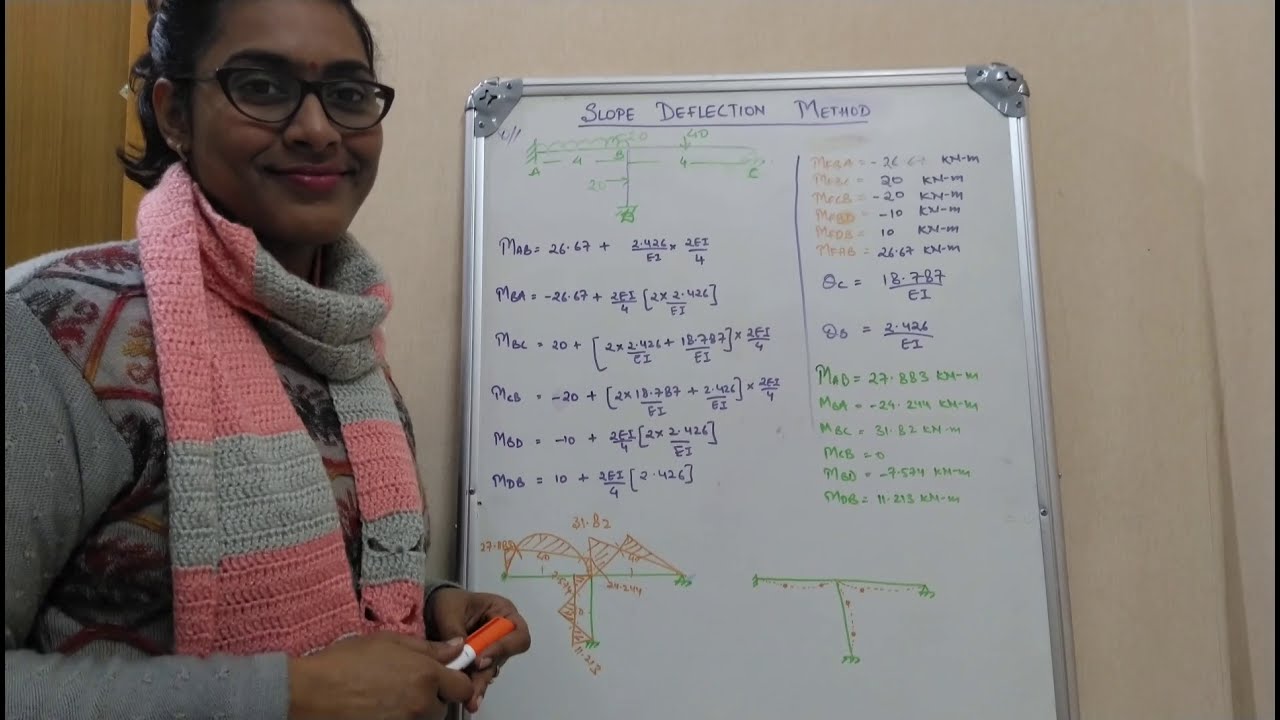 SLOPE DEFLECTION METHOD
20
40
4
B
4
A
C
20
D
MAB = 26.67 + 2.426/EI × 2EI/4
MBA = -26.67 + 2EI/4 [2 × 2.426/EI]
MBC = 20 + [2 × 2.426/EI + 18.787/EI] × 2EI/4
MCB = -20 + [2 × 18.787/EI + 2.426/EI] × 2EI/4
MBD = -10 + 2EI/4 [2 × 2.426/EI]
MDB = 10 + 2EI/4 [2.426]
MFBA = -26.67 KN-m
MFBC = 20 KN-m
MFCB = -20 KN-m
MFBD = -10 KN-m
MFDB = 10 KN-m
MFAB = 26.67 KN-m
θC = 18.787/EI
θB = 2.426/EI
MAB = 27.883 KN-m
MBA = -24.244 KN-m
MBC = 31.82 KN-m
MCB = 0
MBD = -7.574 KN-m
MDB = 11.213 KN-m
31.82
27.883
40
40
7.574
24.244
11.213